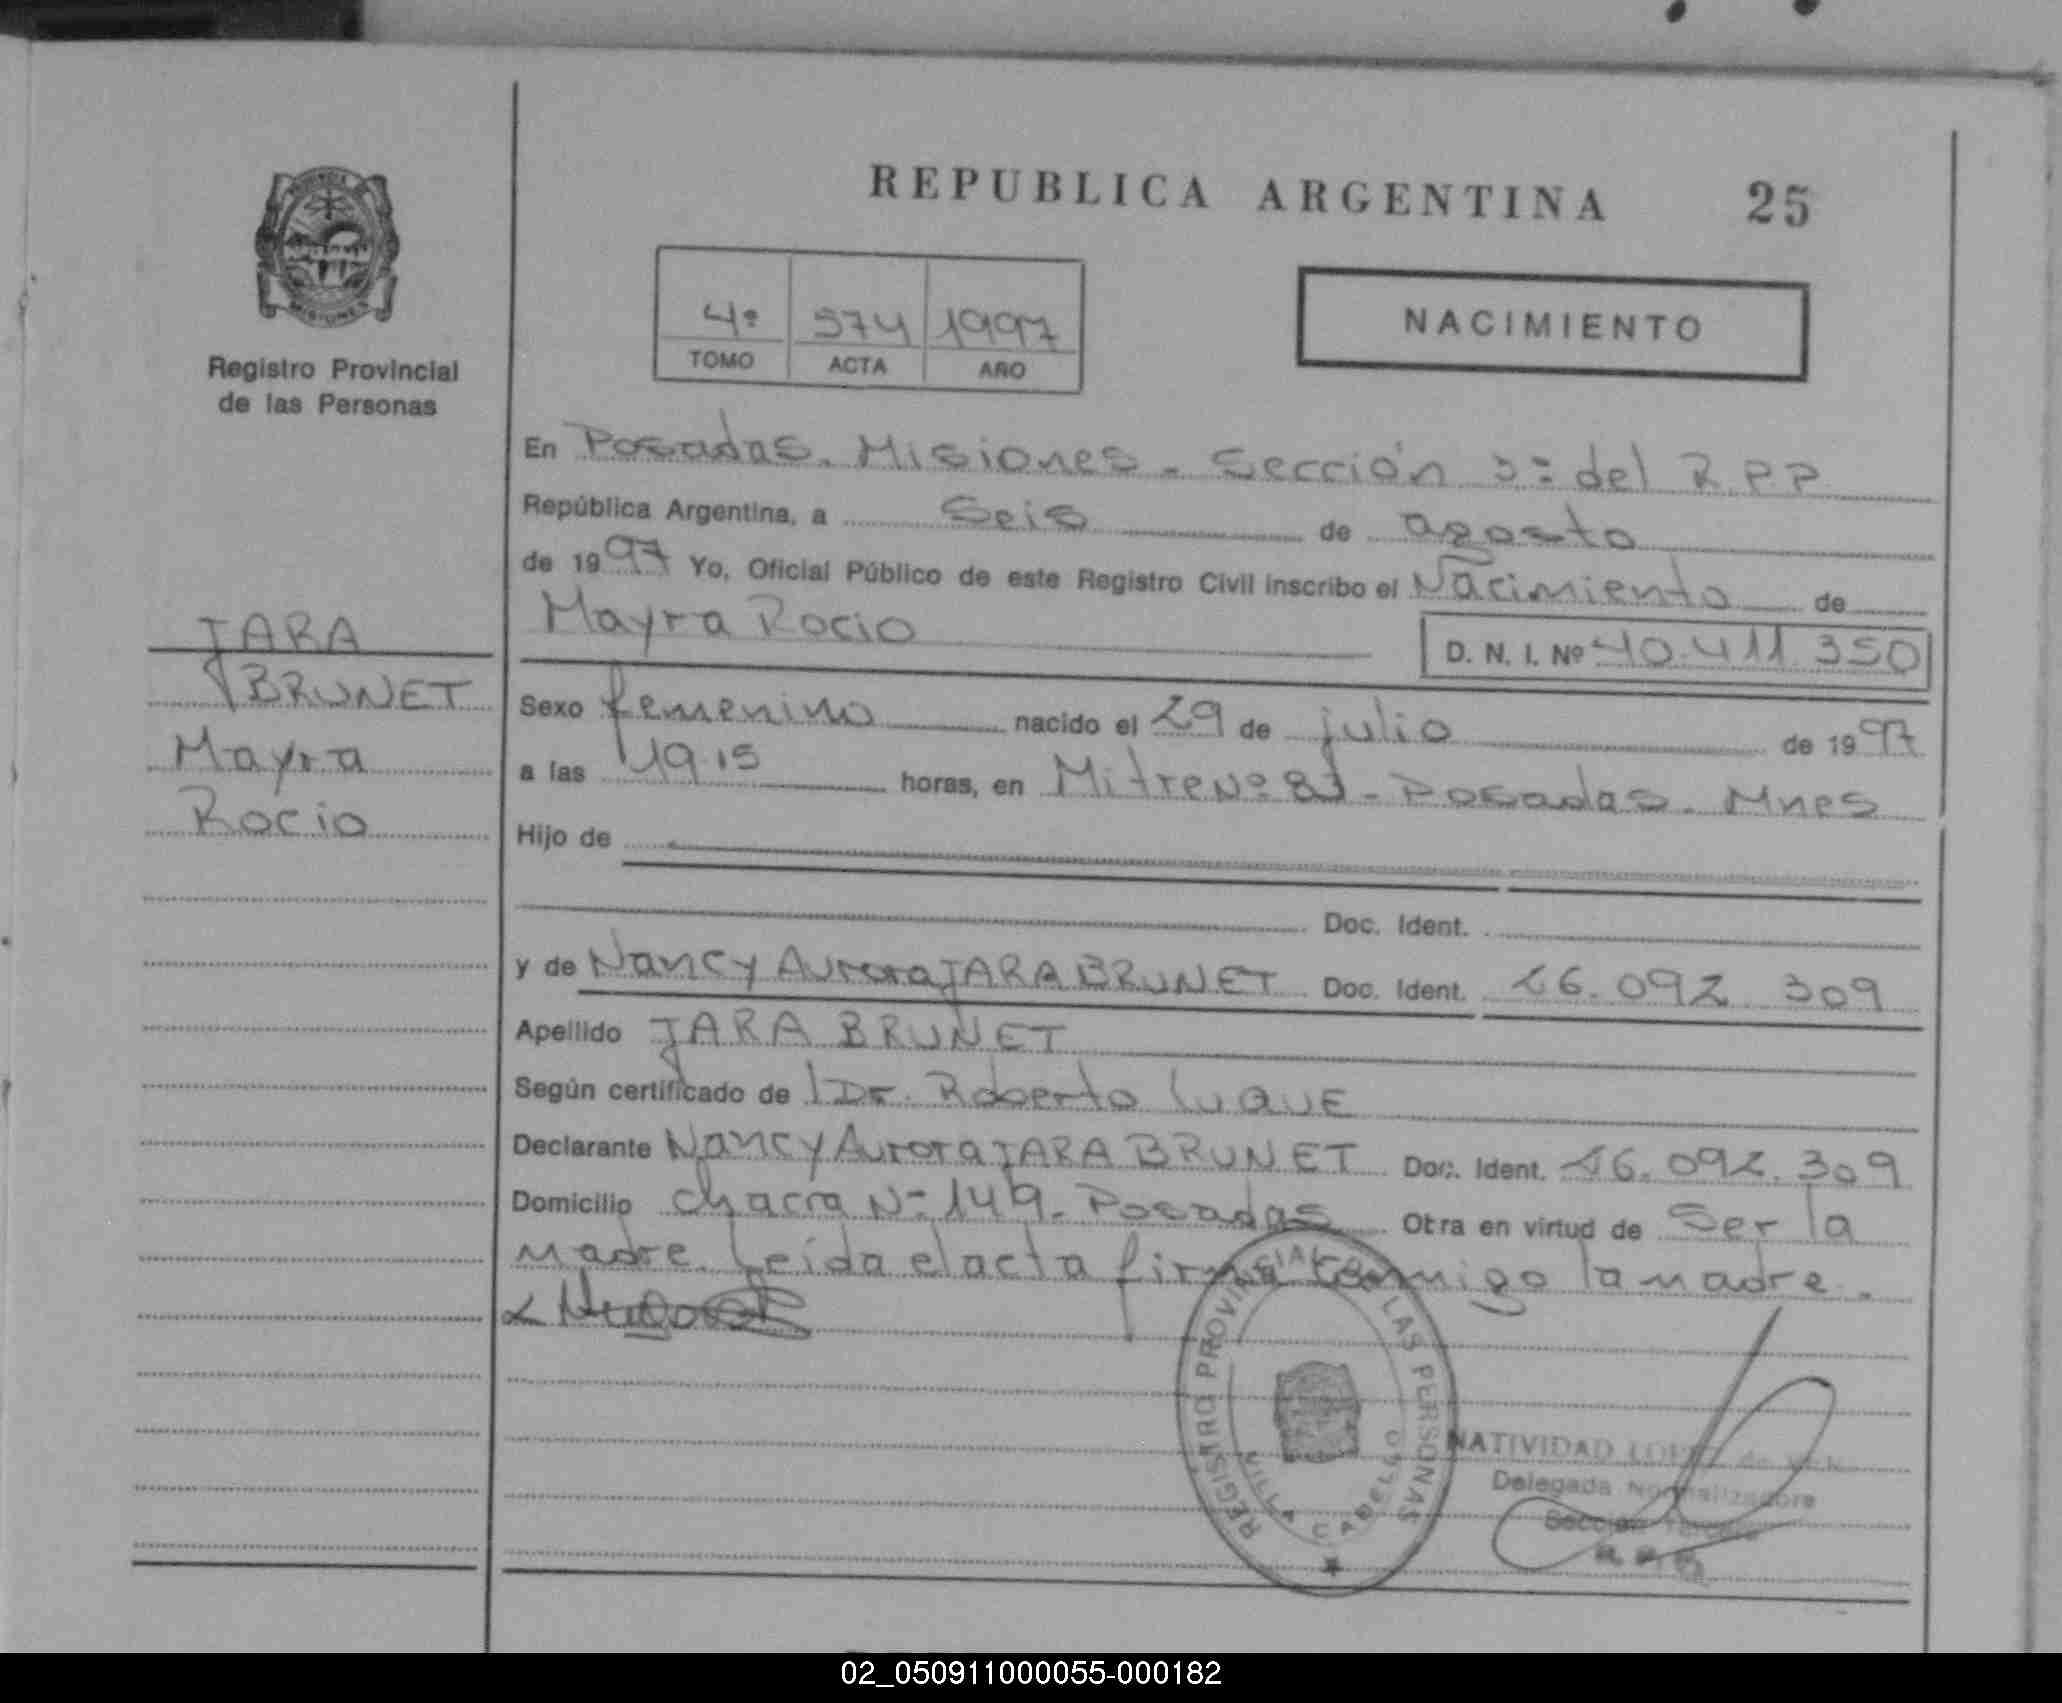 REPUBLICA ARGENTINA 25
4º 574 1997
TOMO ACTA AÑO
NACIMIENTO
PROVINCIA DE
MISIONES
Registro Provincial
de las Personas
JARA
BRUNET
Mayra
Rocio
En Posadas. Misiones. Sección 3º del R.P.P
República Argentina, a Seis de agosto
de 1997 Yo, Oficial Público de este Registro Civil inscribo el Nacimiento de
Mayra Rocio D. N. I. Nº 40.411.350
Sexo femenino nacido el 29 de julio de 1997
a las 19.15 horas, en Mitre Nº - Posadas. Mnes
Hijo de
Doc. Ident.
y de Nancy Aurora JARA BRUNET Doc. Ident. 26.092.309
Apellido JARA BRUNET
Según certificado de Dr. Roberto LUQUE
Declarante Nancy Aurora JARA BRUNET Doc. Ident. 26.092.309
Domicilio chacra Nº 149. Posadas Otra en virtud de Ser la
madre. Leída el acta firma conmigo la madre.
REGISTRO PROVINCIAL DE LAS PERSONAS
VILLA CABELLO
NATIVIDAD LOPEZ de
Delegada Normalizadora
Sección Tercera
R. P. P.
02_050911000055-000182